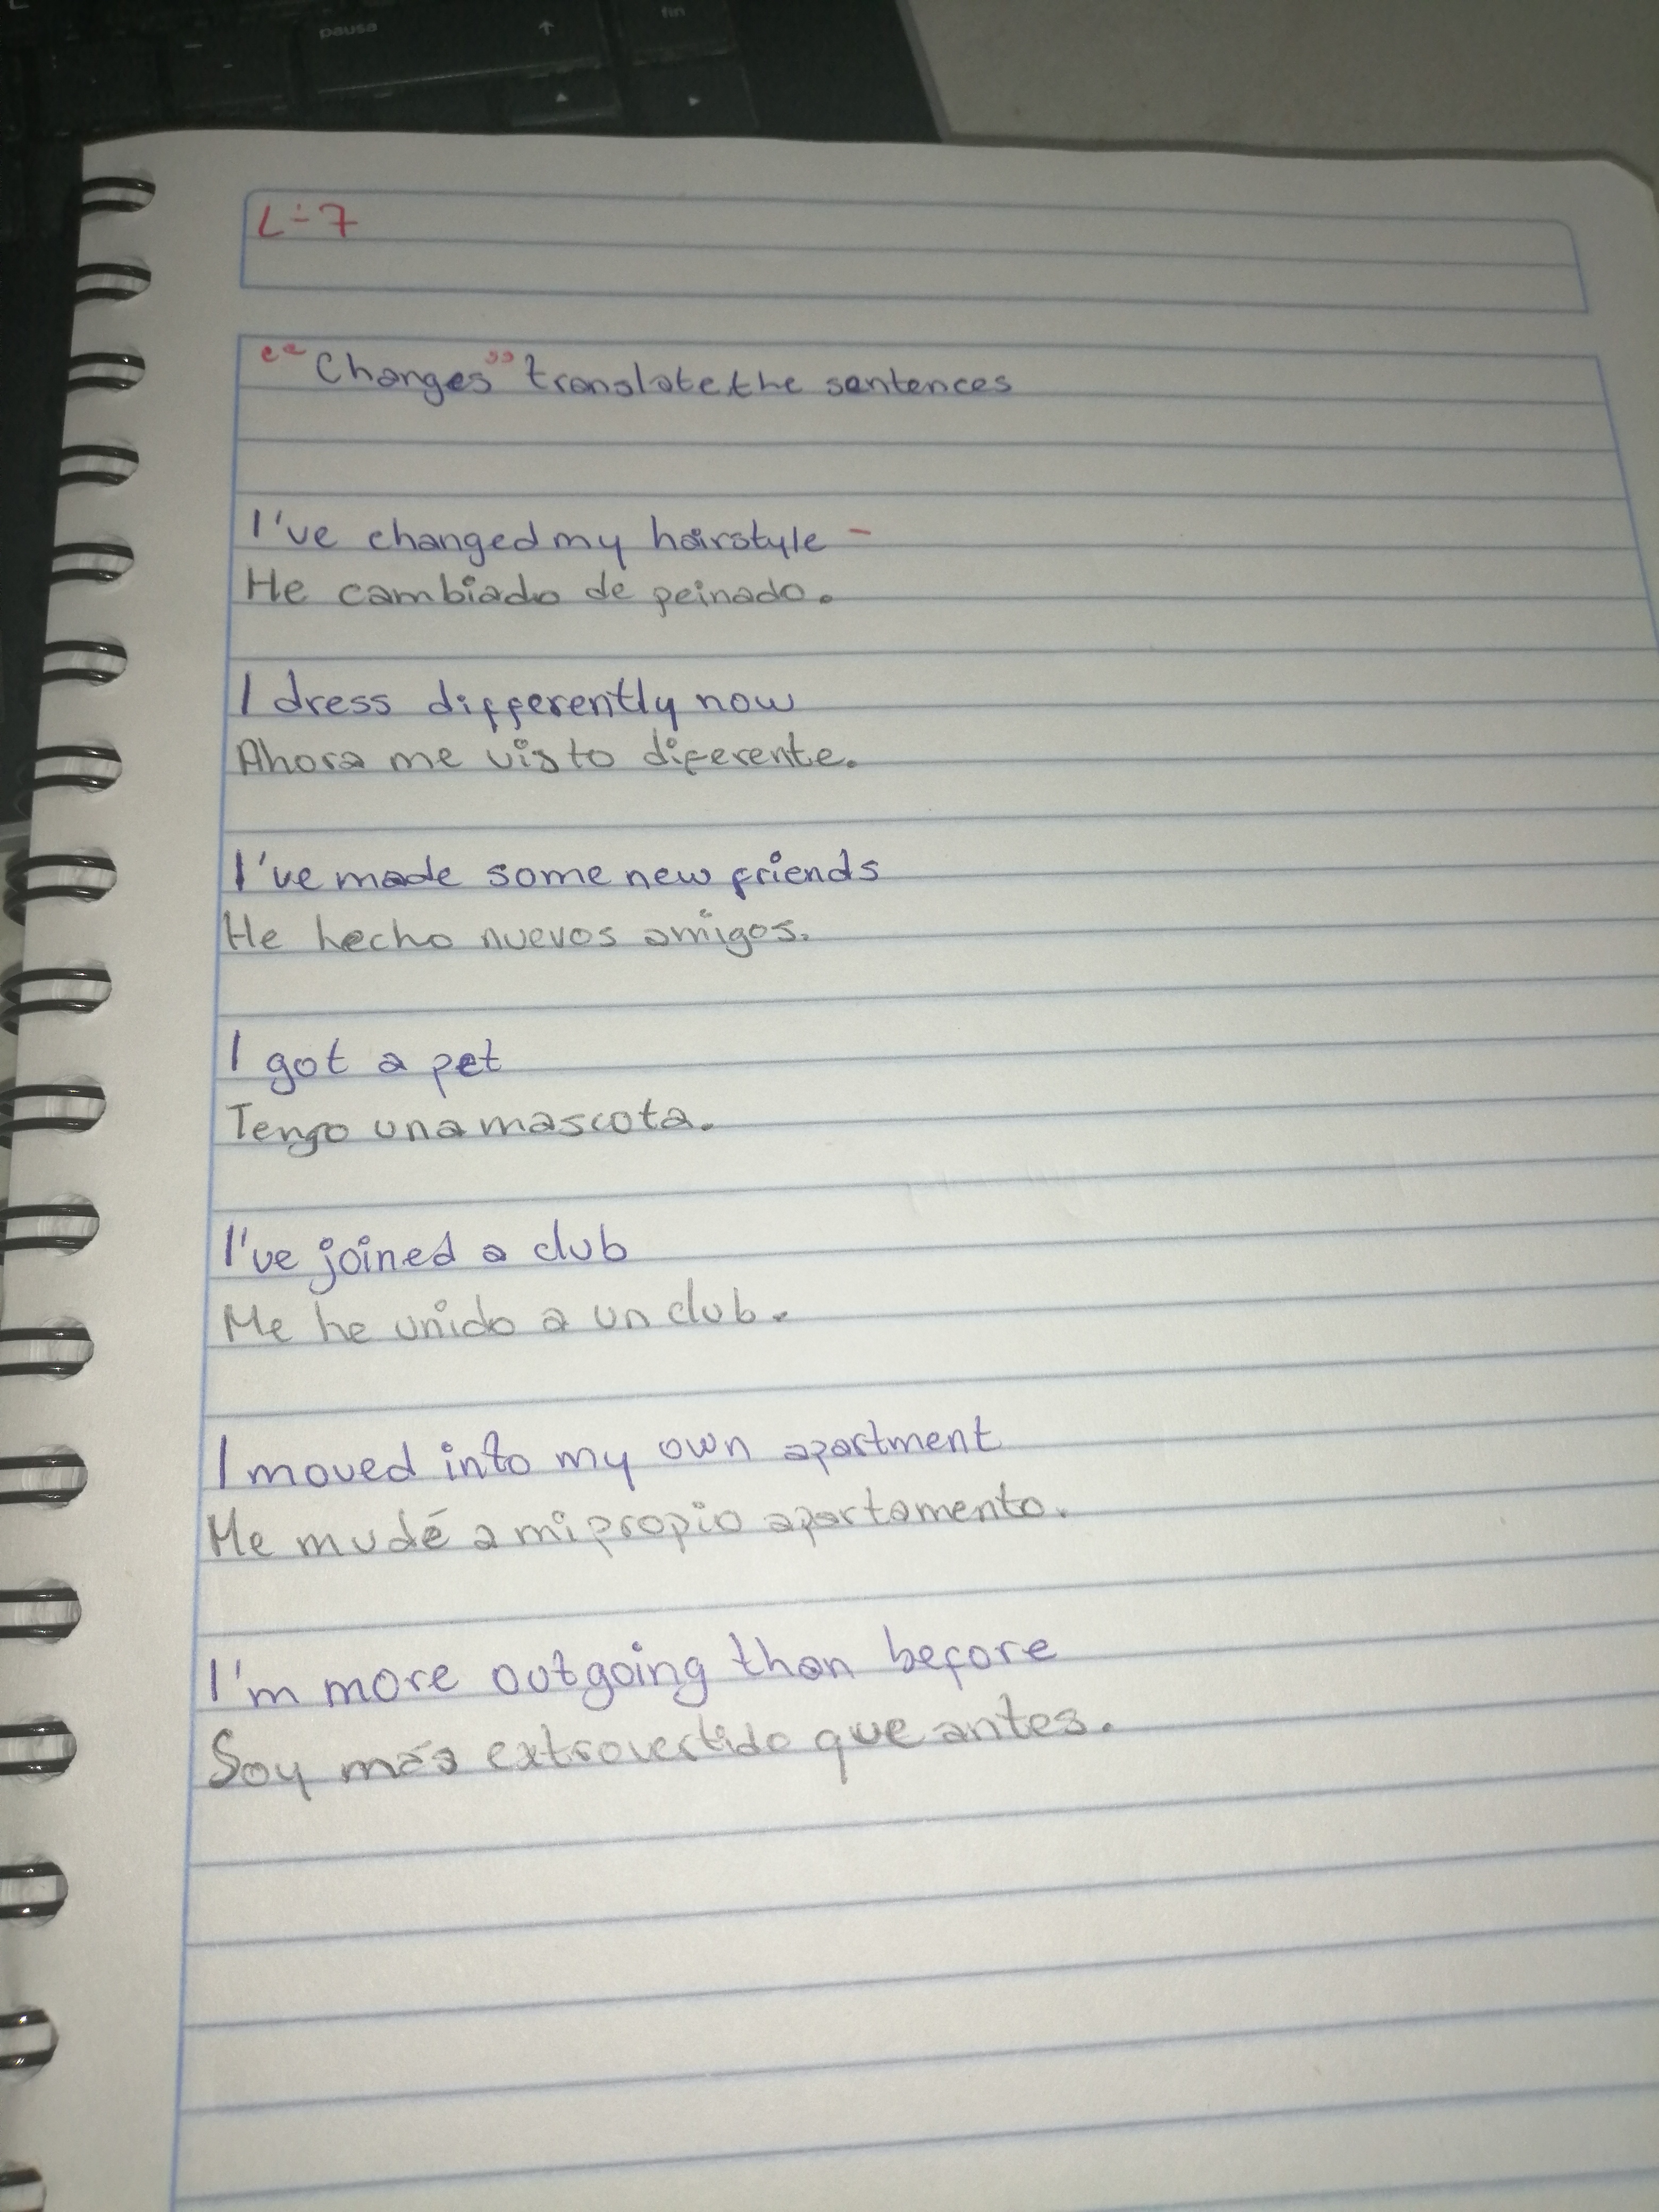 pausa
fin
L-7
"Changes" translate the sentences
I've changed my hairstyle -
He cambiado de peinado.
I dress differently now
Ahora me visto diferente.
I've made some new friends
He hecho nuevos amigos.
I got a pet
Tengo una mascota.
I've joined a club
Me he unido a un club.
I moved into my own apartment
Me mudé a mi propio apartamento.
I'm more outgoing than before
Soy más extrovertido que antes.